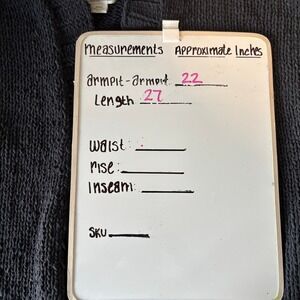 measurements Approximate Inches
armpit-armpit 22
Length 27
Waist:
rise:
Inseam:
SKU